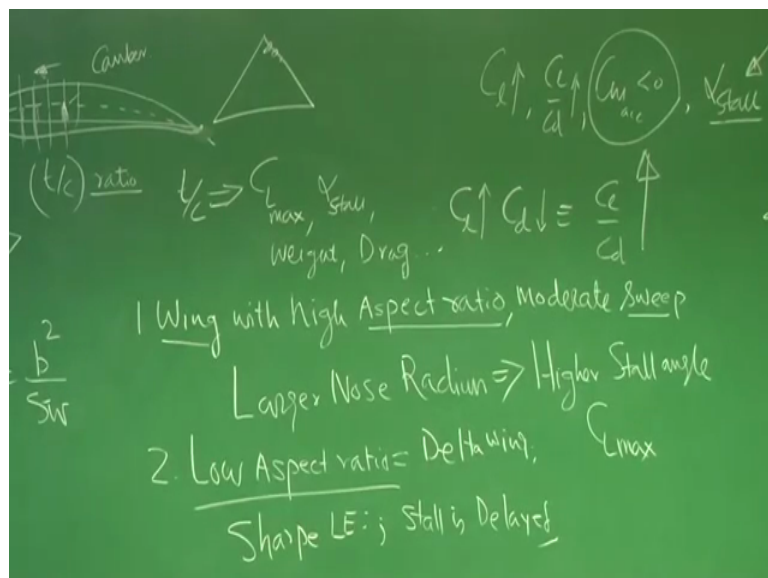 Camber
Cl↑, Cl/Cd↑, Cm a.c <0, αstall
(t/c) ratio
t/c ⇒ CL max, αstall,
Weight, Drag...
Cl↑ Cd↓ ≡ Cl/Cd ↑
= b²/Sw
1 Wing with high Aspect ratio, Moderate Sweep
Larger Nose Radius ⇒ Higher Stall angle
CLmax
2. Low Aspect ratio = Delta wing,
Sharpe LE:; Stall is Delayed